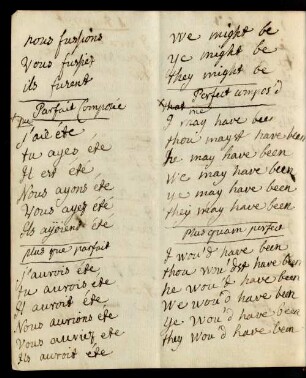 nous fussions
Vous fussiez
ils furent
Parfait Compose
que
J'aie été
tu ayes été
Il est été
Nous ayons été
Vous ayez été
Ils ayoient été
plus que parfait
J'aurois été
tu aurois été
Il auroit été
Nous aurions été
Vous auriez été
Ils auroit été
We might be
ye might be
they might be
Perfect compos'd
that
I may have been
thou mayst have been
he may have been
we may have been
ye may have been
they may have been
Plusquam perfect
I wou'd have been
thou wou'dst have been
he wou'd have been
We wou'd have been
ye wou'd have been
they wou'd have been